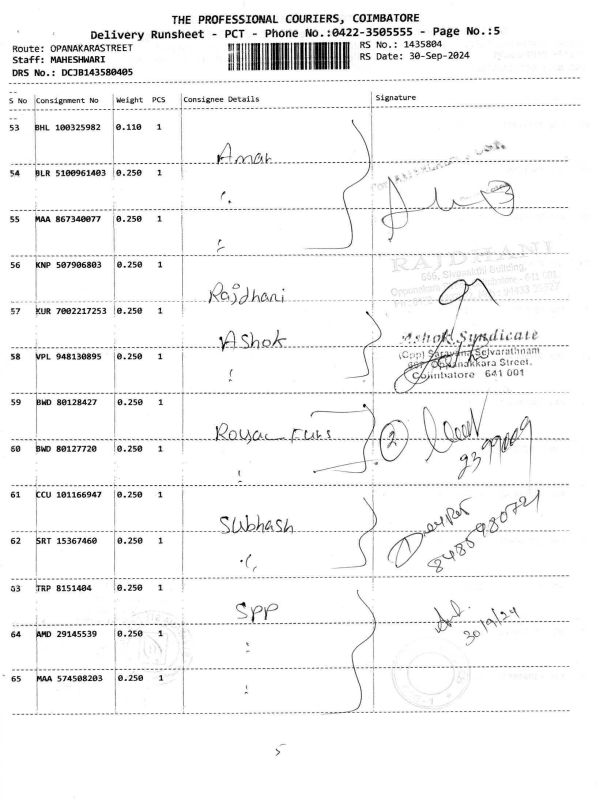 THE PROFESSIONAL COURIERS, COIMBATORE
Delivery Runsheet - PCT - Phone No.:0422-3505555 - Page No.:5
Route: OPANAKARASTREET
RS No.: 1435804
Staff: MAHESHWARI
RS Date: 30-Sep-2024
DRS No.: DCJB143580405
S No Consignment No Weight PCS Consignee Details Signature
53 BHL 100325982 0.110 1
Amar
54 BLR 5100961403 0.250 1
55 MAA 867340077 0.250 1
56 KNP 507906803 0.250 1
RAJDHANI
656, Sivasakthi Building,
Rajdhani
57 KUR 7002217253 0.250 1
Ashok
Ashok Syndicate
58 VPL 948130895 0.250 1
(Opp) Saravana Selvarathnam
Oppanakkara Street,
Coimbatore 641 001
59 BWD 80128427 0.250 1
Royal Furs
2
60 BWD 80127720 0.250 1
61 CCU 101166947 0.250 1
Subhash
62 SRT 15367460 0.250 1
63 TRP 8151404 0.250 1
SPP
30/9/24
64 AMD 29145539 0.250 1
65 MAA 574508203 0.250 1
5